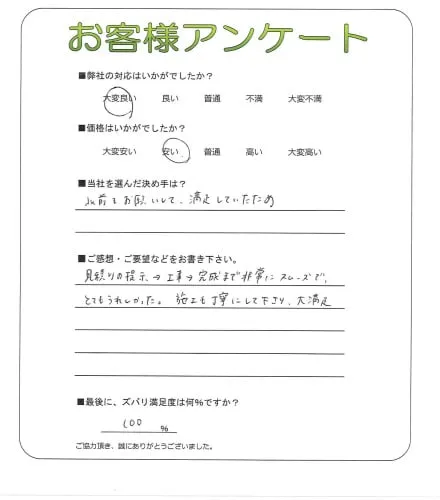 お客様アンケート
■弊社の対応はいかがでしたか?
大変良い 良い 普通 不満 大変不満
■価格はいかがでしたか?
大変安い 安い 普通 高い 大変高い
■当社を選んだ決め手は?
以前もお願いして、満足していたため
■ご感想・ご要望などをお書き下さい。
見積りの提示→工事→完成まで非常にスムーズで、
とてもうれしかった。 施工も丁寧にして下さり、大満足
■最後に、ズバリ満足度は何%ですか?
100 %
ご協力頂き、誠にありがとうございました。